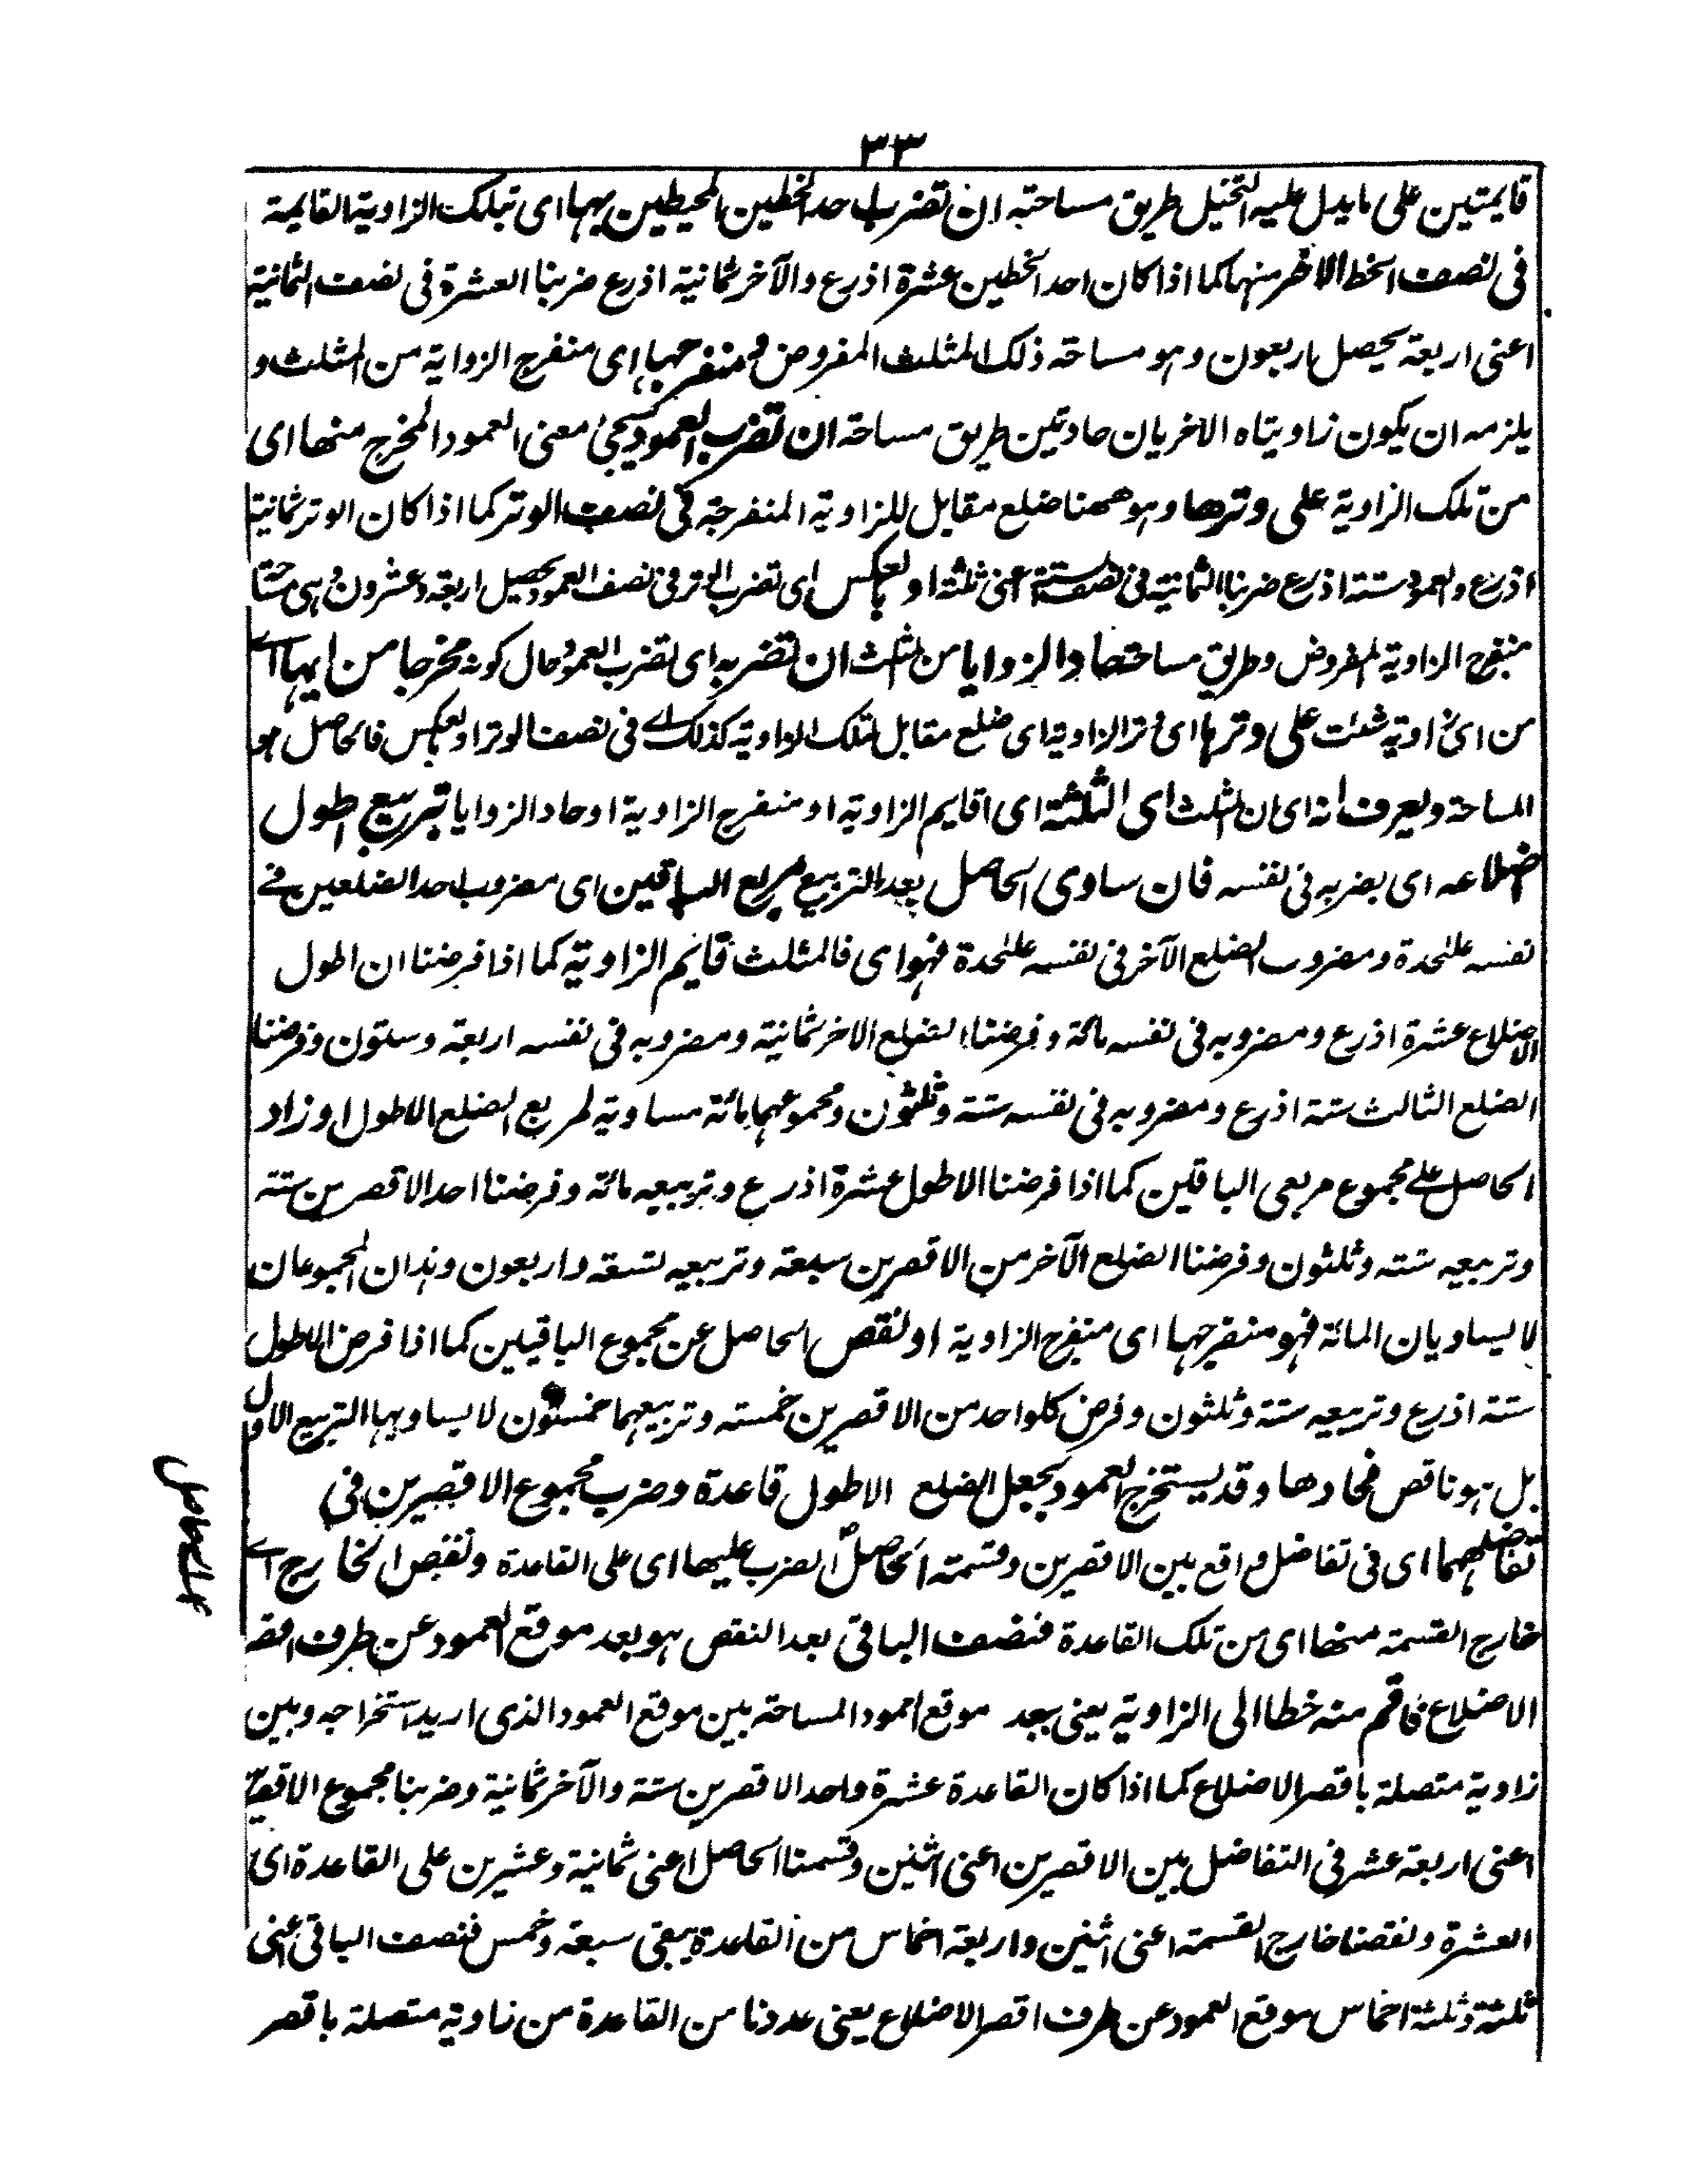 ٣٣
قايمتين على مايدل عليه التخيل طريق مساحته ان تضرب احد الخطين المحيطين بها اى بتلك الزاوية القايمة
فى نصف الخط الاخر منهما كما اذا كان احد الخطين عشرة اذرع والآخر ثمانية اذرع ضربنا العشرة فى نصف الثمانية
اعنى اربعة يحصل اربعون وهو مساحة ذلك المثلث المفروض و منفرجها اى منفرج الزواية من المثلث و
يلزمه ان يكون زاويتاه الاخريان حادتين طريق مساحة ان تضرب العمود سيجئ معنى العمود المخرج منها اى
من تلك الزاوية على وترها وهو ههنا ضلع مقابل للزاوية المنفرجة فى نصف الوتر كما اذا كان الوتر ثمانية
اذرع والعمود ستة اذرع ضربنا الثمانية فى نصف الستة اعنى ثلثة او بالعكس اى تضرب الوتر فى نصف العمود يحصل اربعة وعشرون وهى مساحة
منفرج الزاوية المفروض وطريق مساحة حاد الزوايا من المثلث ان تضربه اى تضرب العمود حال كونه مخرجا من ايها اے
من اى زاوية شئت على وترها اى وتر الزاوية اى ضلع مقابل لتلك الزاوية كذلك اے فى نصف الوتر او بالعكس فالحاصل هو
المساحة ويعرف انه اى ان المثلث اى الثلثة اى اقايم الزاوية او منفرج الزاوية او حاد الزوايا بتربيع اطول
اضلاعه اى بضربه فى نفسه فان ساوى الحاصل بعد التربيع مربع الباقين اى مضروب احد الضلعين فے
نفسه علٰحدة ومضروب الضلع الآخر فى نفسه علٰحدة فهو اى فالمثلث قايم الزاوية كما اذا فرضنا ان اطول
الاضلاع عشرة اذرع ومضروبه فى نفسه مائة وفرضنا الضلع الاخر ثمانية ومضروبه فى نفسه اربعة وستون وفرضنا
الضلع الثالث ستة اذرع ومضروبه فى نفسه ستة وثلثون ومجموعهما مائة مساوية لمربع الضلع الاطول او زاد
الحاصل علے مجموع مربعى الباقين كما اذا فرضنا الاطول عشرة اذرع وتربيعه مائة وفرضنا احد الاقصرين ستة
وتربيعه ستة وثلثون وفرضنا الضلع الآخر من الاقصرين سبعة وتربيعه تسعة واربعون وهذان المجموعان
لا يساويان المائة فهو منفرجها اى منفرج الزاوية او نقص الحاصل عن مجموع الباقيين كما اذا فرض الاطول
ستة اذرع وتربيعه ستة وثلثون وفرض كلواحد من الاقصرين خمسة وتربيعهما خمسون لا يساويها التربيع الاول
بل هو ناقص فحادها وقد يستخرج العمود بجعل الضلع الاطول قاعدة وضرب مجموع الاقصرين فى
تفاضلهما اى فى تفاضل واقع بين الاقصرين وقسمة الحاصل الضرب عليها اى على القاعدة ونقص الخارج اے
خارج القسمة منها اى من تلك القاعدة فنصف الباقى بعد النقص هو بعد موقع العمود عن طرف اقصر
الاضلاع فاقم منه خطا الى الزاوية يعنى بعد موقع العمود المساحة بين موقع العمود الذى اريد استخراجه وبين
زاوية متصلة باقصر الاضلاع كما اذا كان القاعدة عشرة واحد الاقصرين ستة والآخر ثمانية وضربنا مجموع الاقصرين
اعنى اربعة عشر فى التفاضل بين الاقصرين اعنى اثنين وقسمنا الحاصل اعنى ثمانية وعشرين على القاعدة اى
العشرة ونقصنا خارج القسمة اعنى اثنين واربعة اخماس من القاعدة يبقى سبعة وخمس فنصف الباقى اعنى
ثلثة وثلثة اخماس موقع العمود عن طرف اقصر الاضلاع يعنى عددنا من القاعدة من زاوية متصلة باقصر